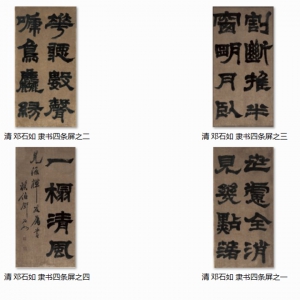 華聽數聲
嗁鳥塵緣
清 邓石如 隶书四条屏之二
割斷推半
窗明月臥
清 邓石如 隶书四条屏之三
一榻清風
清 邓石如 隶书四条屏之四
世慮全消
見幾點落
清 邓石如 隶书四条屏之一